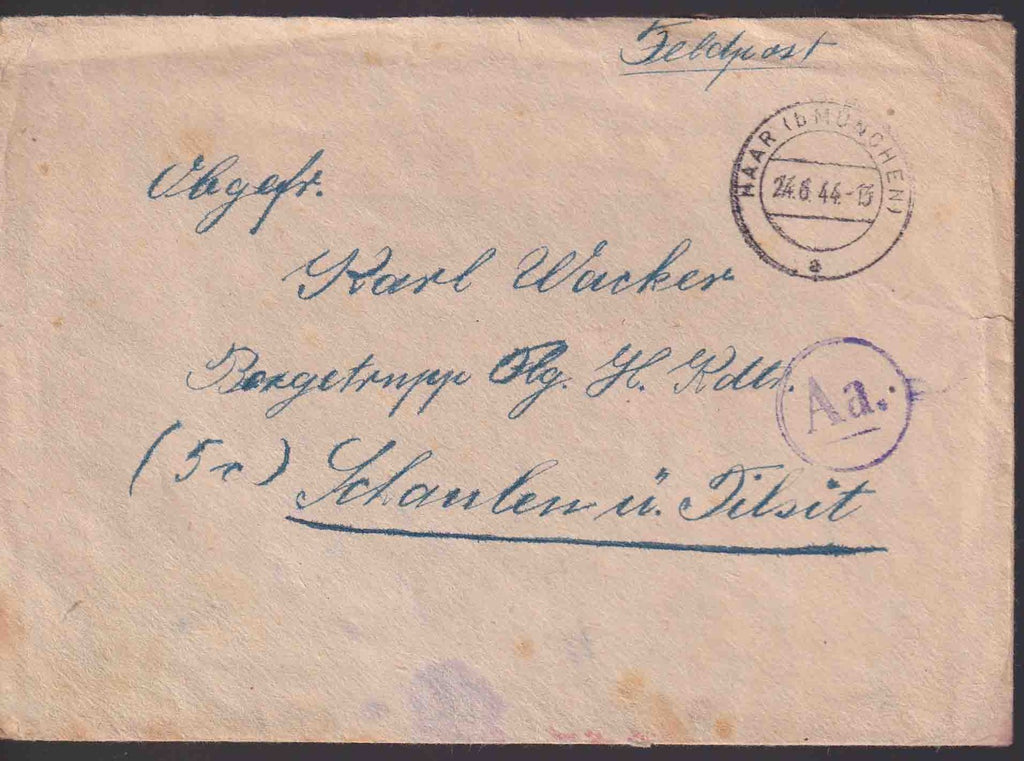 Feldpost
HAAR (b MÜNCHEN)
24.6.44-13
a
Obgefr.
Karl Wacker
Bergetrupp Flg. H. Kdtr.
Aa.
(5c) Schaulen ü. Tilsit